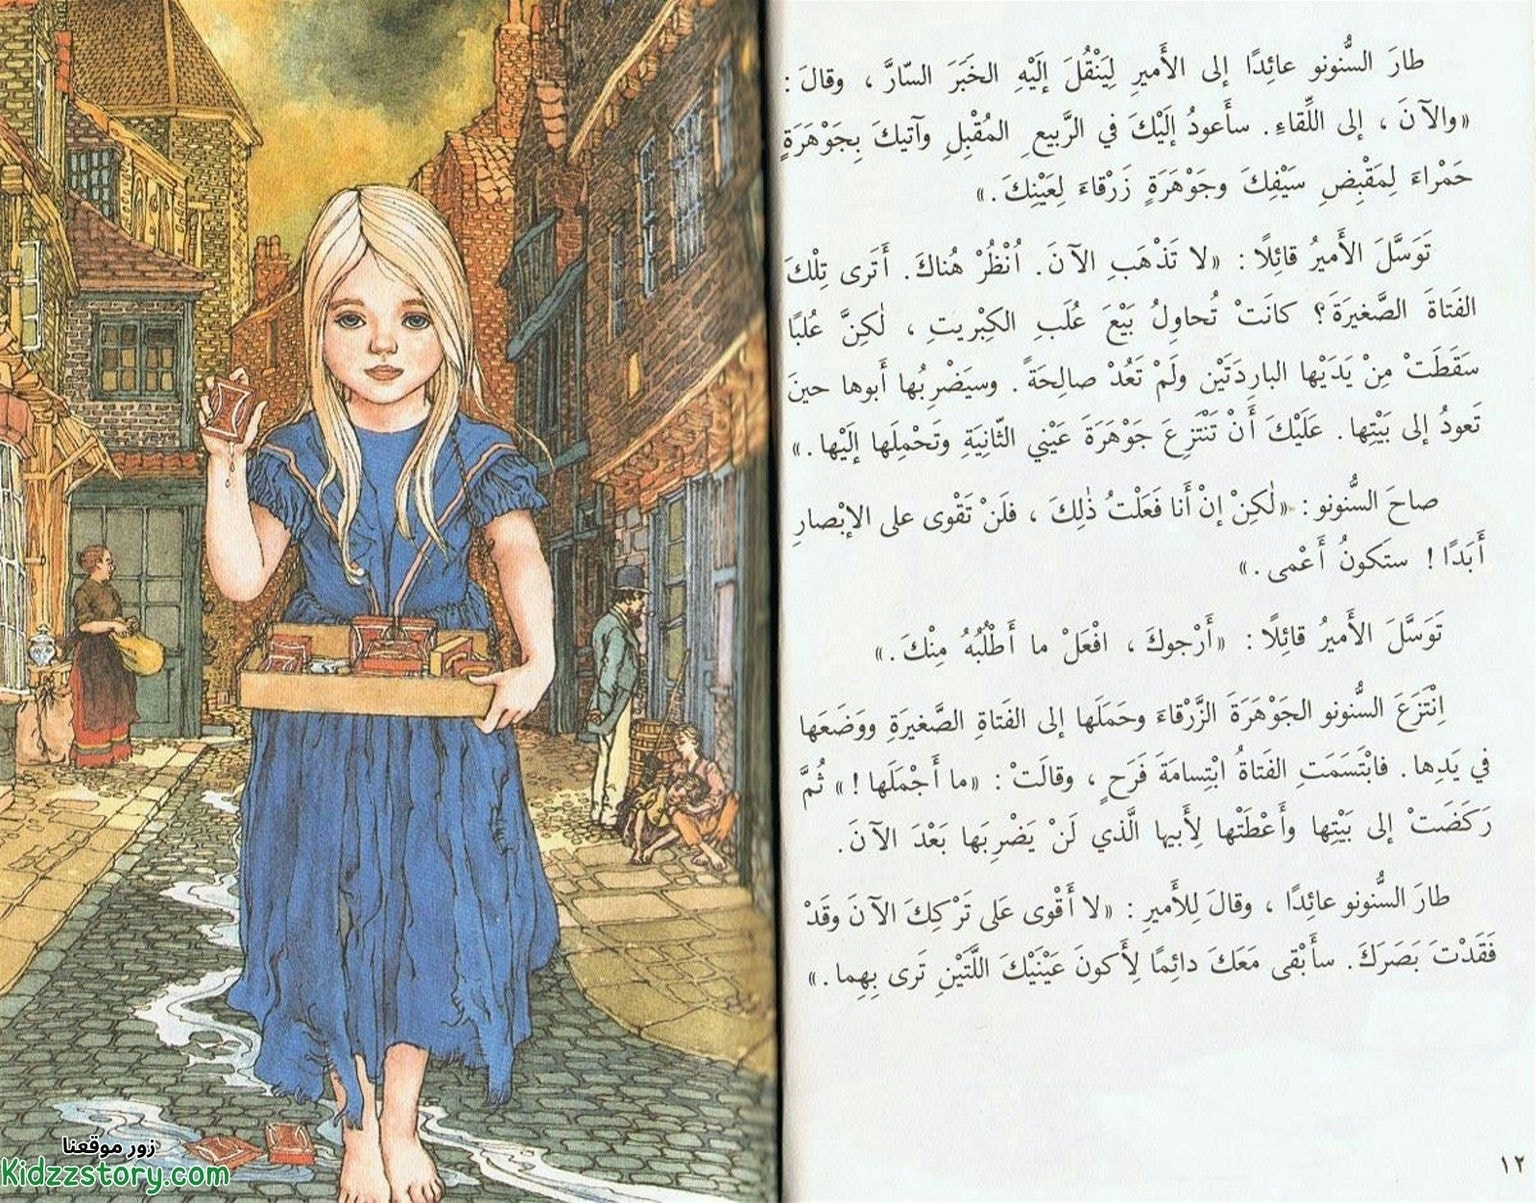 طارَ السُّنونو عائِدًا إلى الأَميرِ لِيَنْقُلَ إلَيْهِ الخَبَرَ السّارَّ ، وقالَ :
«والآنَ ، إلى اللِّقاءِ. سأَعودُ إلَيْكَ في الرَّبيعِ المُقْبِلِ وآتيكَ بِجَوْهَرَةٍ
حَمْراءَ لِمَقْبِضِ سَيْفِكَ وجَوْهَرَةٍ زَرْقاءَ لِعَيْنِكَ .»
تَوَسَّلَ الأَميرُ قائِلًا : «لا تَذْهَبِ الآنَ. اُنْظُرْ هُناكَ. أَتَرى تِلْكَ
الفَتاةَ الصَّغيرَةَ؟ كانَتْ تُحاوِلُ بَيْعَ عُلَبِ الكِبْريتِ ، لٰكِنَّ عُلَبًا
سَقَطَتْ مِنْ يَدَيْها البارِدَتَيْنِ ولَمْ تَعُدْ صالِحَةً. وسيَضْرِبُها أَبوها حينَ
تَعودُ إلى بَيْتِها. عَلَيْكَ أَنْ تَنْتَزِعَ جَوْهَرَةَ عَيْني الثّانِيَةِ وتَحْمِلَها إلَيْها.»
صاحَ السُّنونو : «لٰكِنْ إنْ أَنا فَعَلْتُ ذٰلِكَ ، فلَنْ تَقْوى على الإبْصارِ
أَبَدًا ! ستَكونُ أَعْمى .»
تَوَسَّلَ الأَميرُ قائِلًا : «أَرْجوكَ ، افْعَلْ ما أَطْلُبُهُ مِنْكَ .»
اِنْتَزَعَ السُّنونو الجَوْهَرَةَ الزَّرْقاءَ وحَمَلَها إلى الفَتاةِ الصَّغيرَةِ ووَضَعَها
في يَدِها. فابْتَسَمَتِ الفَتاةُ ابْتِسامَةَ فَرَحٍ ، وقالَتْ : «ما أَجْمَلَها !» ثُمَّ
رَكَضَتْ إلى بَيْتِها وأَعْطَتْها لِأَبيها الَّذي لَنْ يَضْرِبَها بَعْدَ الآنَ.
طارَ السُّنونو عائِدًا ، وقالَ لِلأَميرِ : «لا أَقْوى عَلى تَرْكِكَ الآنَ وقَدْ
فَقَدْتَ بَصَرَكَ. سأَبْقى مَعَكَ دائِمًا لِأَكونَ عَيْنَيْكَ اللَّتَيْنِ تَرى بِهِما .»
١٢
زور موقعنا
Kidzzstory.com